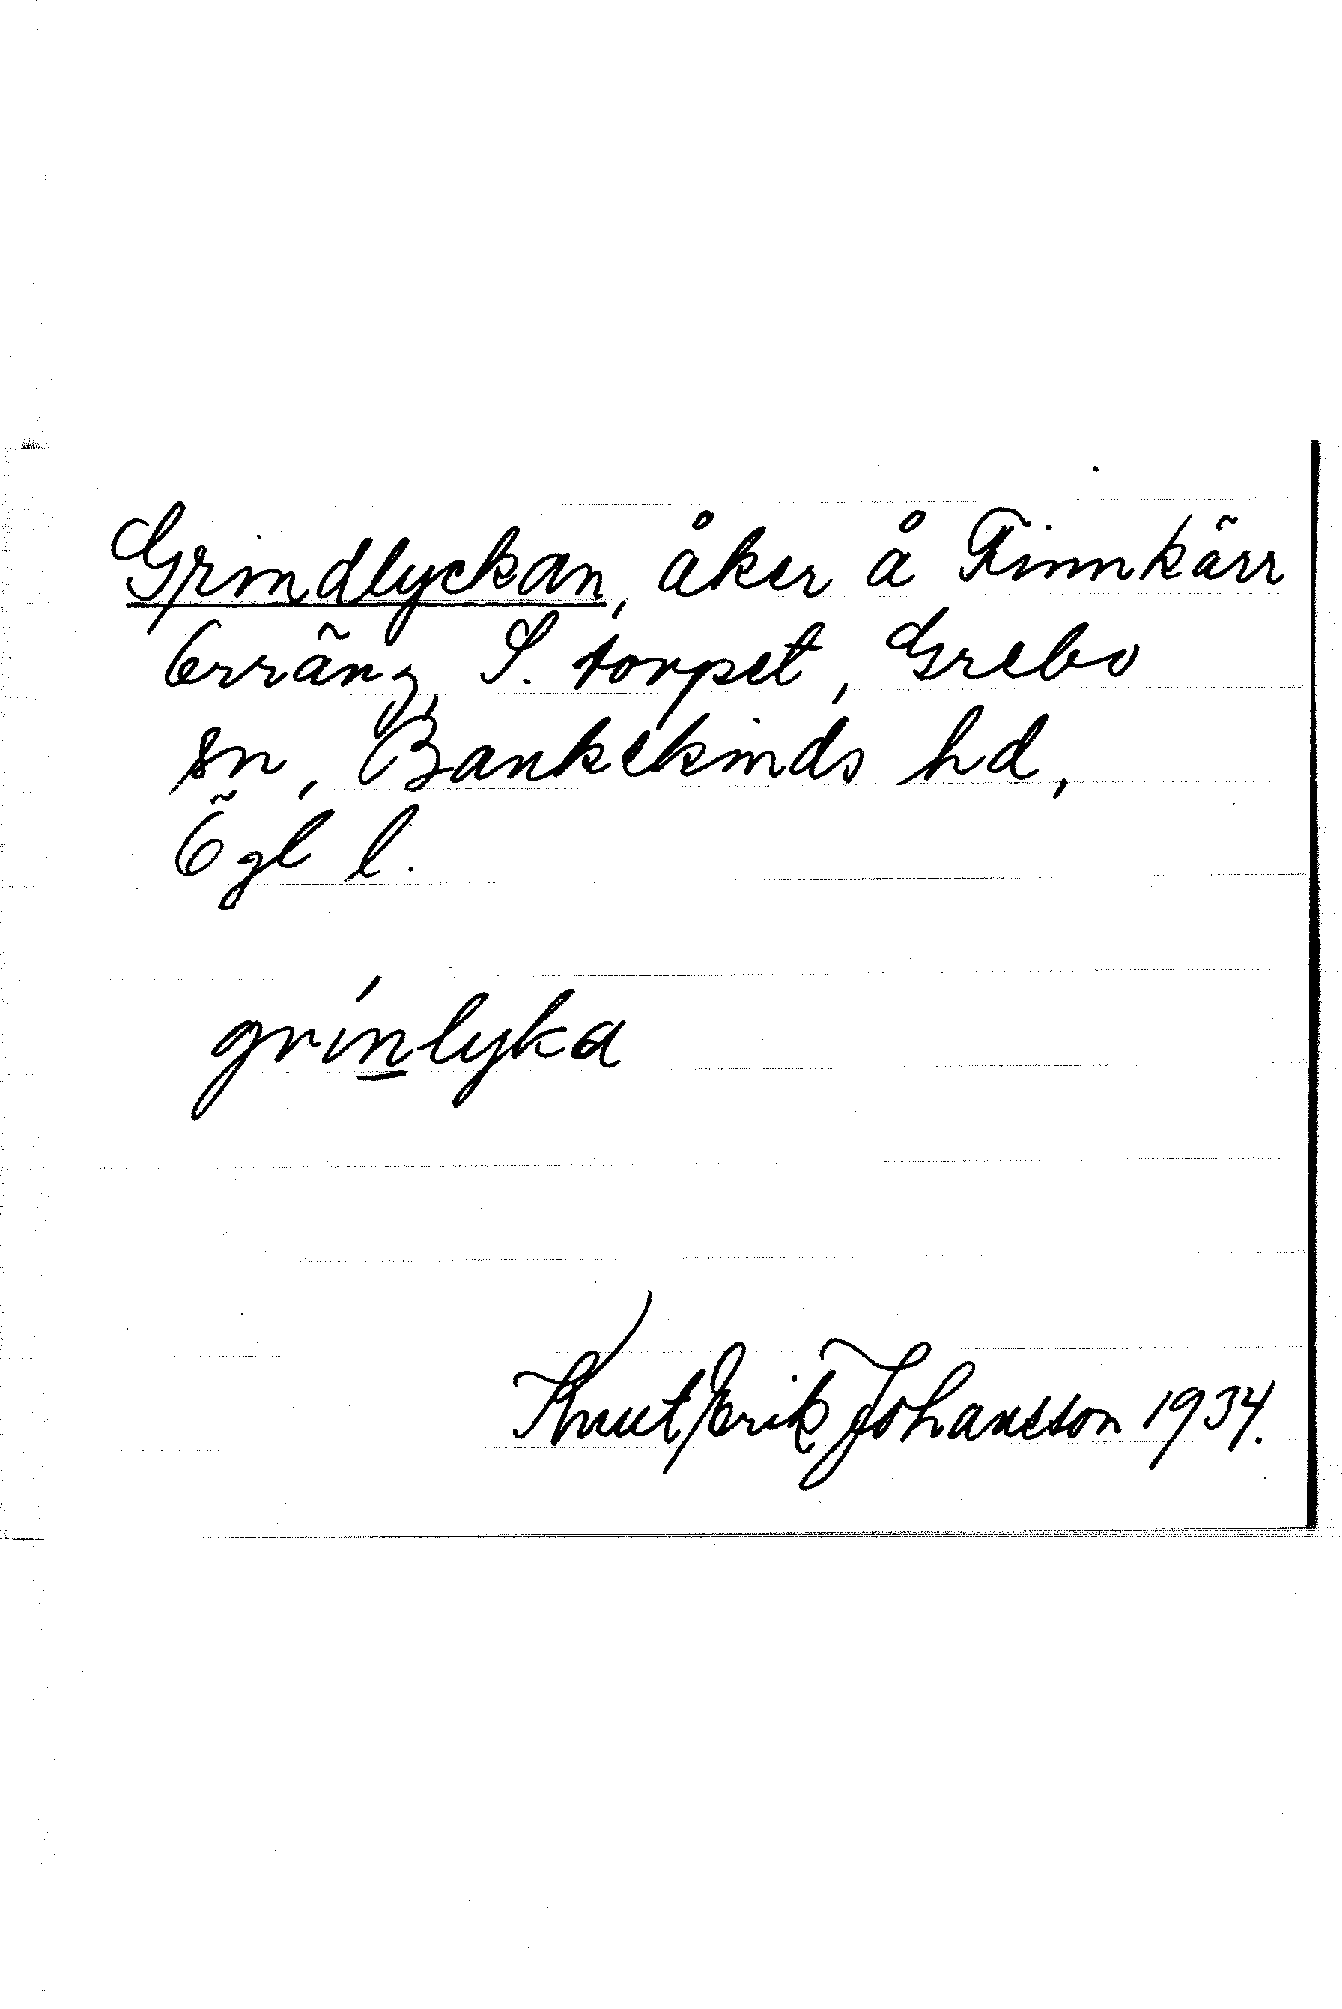 Grindlyckan, åker å Finnkärr
Erräng, S. torpet, Grebo
sn, Bankekinds hd,
Ögl l.
grínlyka
Knut Erik Johansson 1934.